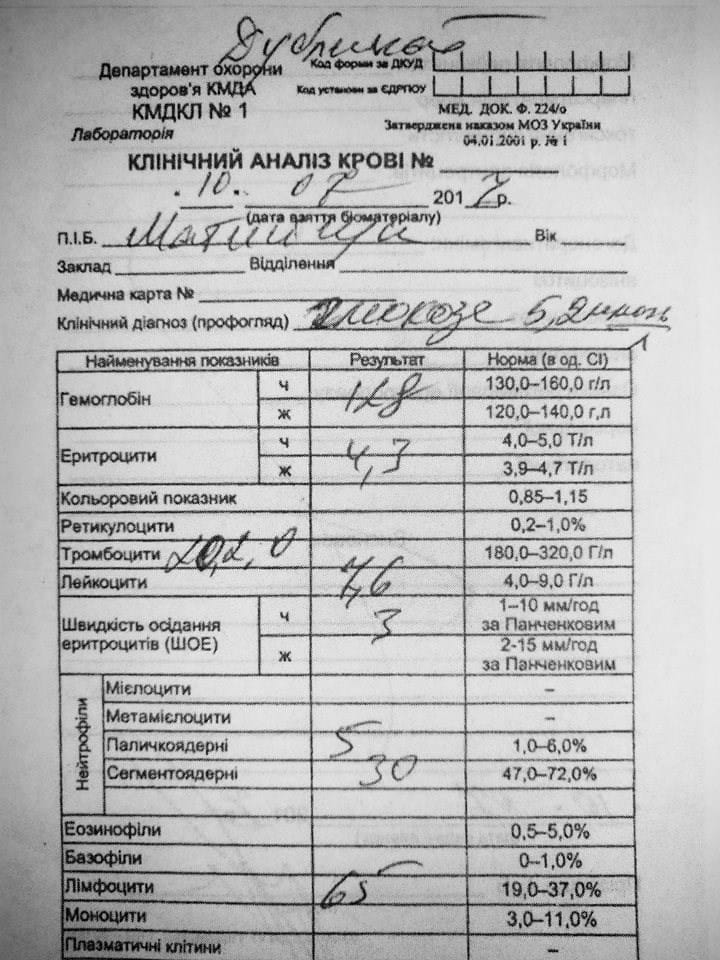 Дублікат
Департамент охорони
здоров'я КМДА
КМДКЛ № 1
Лабораторія
Код форми за ДКУД
Код установи за ЄДРПОУ
МЕД. ДОК. Ф. 224/о
Затверджена наказом МОЗ України
04.01.2001 р. № 1
КЛІНІЧНИЙ АНАЛІЗ КРОВІ №
10. 07 2017р.
(дата взяття біоматеріалу)
П.І.Б. Вік
Заклад Відділення
Медична карта №
Клінічний діагноз (профогляд) 5,2
Найменування показників Результат Норма (в од. СІ)
Гемоглобін 128
ч 130,0–160,0 г/л
ж 120,0–140,0 г,л
Еритроцити 4,3
ч 4,0–5,0 Т/л
ж 3,9–4,7 Т/л
Кольоровий показник 0,85–1,15
Ретикулоцити 0,2–1,0%
Тромбоцити 202,0 180,0–320,0 Г/л
Лейкоцити 7,6 4,0–9,0 Г/л
Швидкість осідання
еритроцитів (ШОЕ)
ч 3 1–10 мм/год
за Панченковим
ж 2-15 мм/год
за Панченковим
Нейтрофіли
Мієлоцити –
Метамієлоцити –
Паличкоядерні 5 1,0–6,0%
Сегментоядерні 30 47,0–72,0%
Еозинофіли 0,5–5,0%
Базофіли 0–1,0%
Лімфоцити 65 19,0–37,0%
Моноцити 3,0–11,0%
Плазматичні клітини –